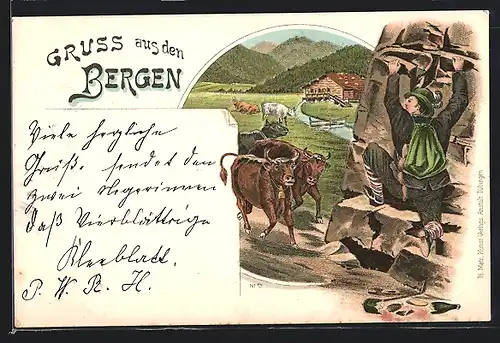 GRUSS aus den
BERGEN
Viele herzliche
Grüß. sendet den
zwei Negerinnen
daß Vierblättrige
Kleeblatt.
P. W. R. H.
No 9
Kunst Verlags Anstalt Tübingen